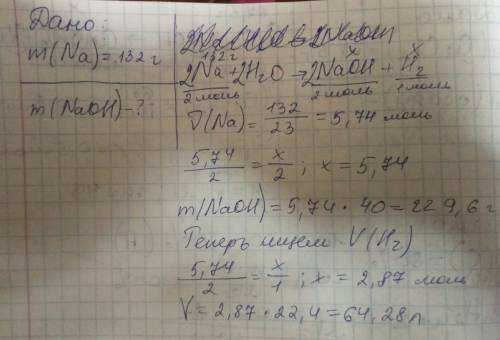 Дано:
m(Na)=132г
m(NaOH)-?
132г x x
2Na+2H₂O→2NaOH+H₂
2моль 2моль 1моль
ν(Na)=132/23=5,74 моль
5,74/2=x/2; x=5,74
m(NaOH)=5,74·40=229,6г
Теперь ищем V(H₂)
5,74/2=x/1; x=2,87 моль
V=2,87·22,4=64,28л